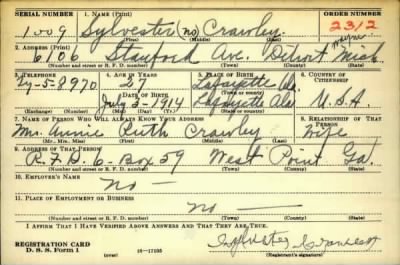 SERIAL NUMBER 1. NAME (Print) ORDER NUMBER
1009 Sylvester (no) Crawley 2312
(First) (Middle) (Last)
2. ADDRESS (Print)
6106 Stanford Ave. Detroit Wayne Mich.
(Number and street or R. F. D. number) (Town) (County) (State)
3. TELEPHONE 4. AGE IN YEARS 5. PLACE OF BIRTH 6. COUNTRY OF CITIZENSHIP
Ty-5-8970 27 Lafayette Ala.
DATE OF BIRTH
July 3-1914 Lafayette Ala U.S.A.
(Exchange) (Number) (Mo.) (Day) (Yr.) (Town or county) (State or country)
7. NAME OF PERSON WHO WILL ALWAYS KNOW YOUR ADDRESS 8. RELATIONSHIP OF THAT PERSON
Mrs. Annie Ruth Crawley Wife
(Mr., Mrs., Miss) (First) (Middle) (Last)
9. ADDRESS OF THAT PERSON
R.F.D. 6-Box 59 West Point Ga.
(Number and street or R. F. D. number) (Town) (County) (State)
10. EMPLOYER'S NAME
no —
11. PLACE OF EMPLOYMENT OR BUSINESS
no —
(Number and street or R. F. D. number) (Town) (County) (State)
I AFFIRM THAT I HAVE VERIFIED ABOVE ANSWERS AND THAT THEY ARE TRUE.
REGISTRATION CARD
D. S. S. Form 1 (over) 16-17105 (Registrant's signature)